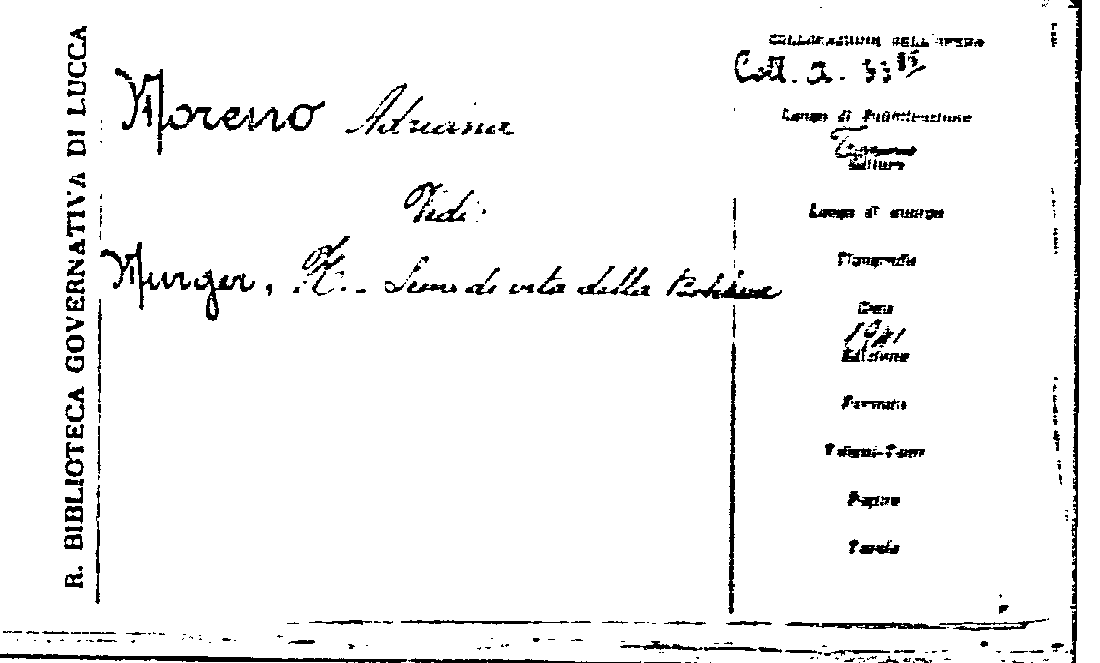 R. BIBLIOTECA GOVERNATIVA DI LUCCA
Moreno Adriana
Vedi:
Murger, H. - Scene di vita della Bohème
COLLOCAZIONE DELL'OPERA
Coll. a. 33
Luogo di Pubblicazione
Editore
Luogo di stampa
Tipografia
Data
Edizione
Formato
Volumi-Tomi
Pagine
Tavole